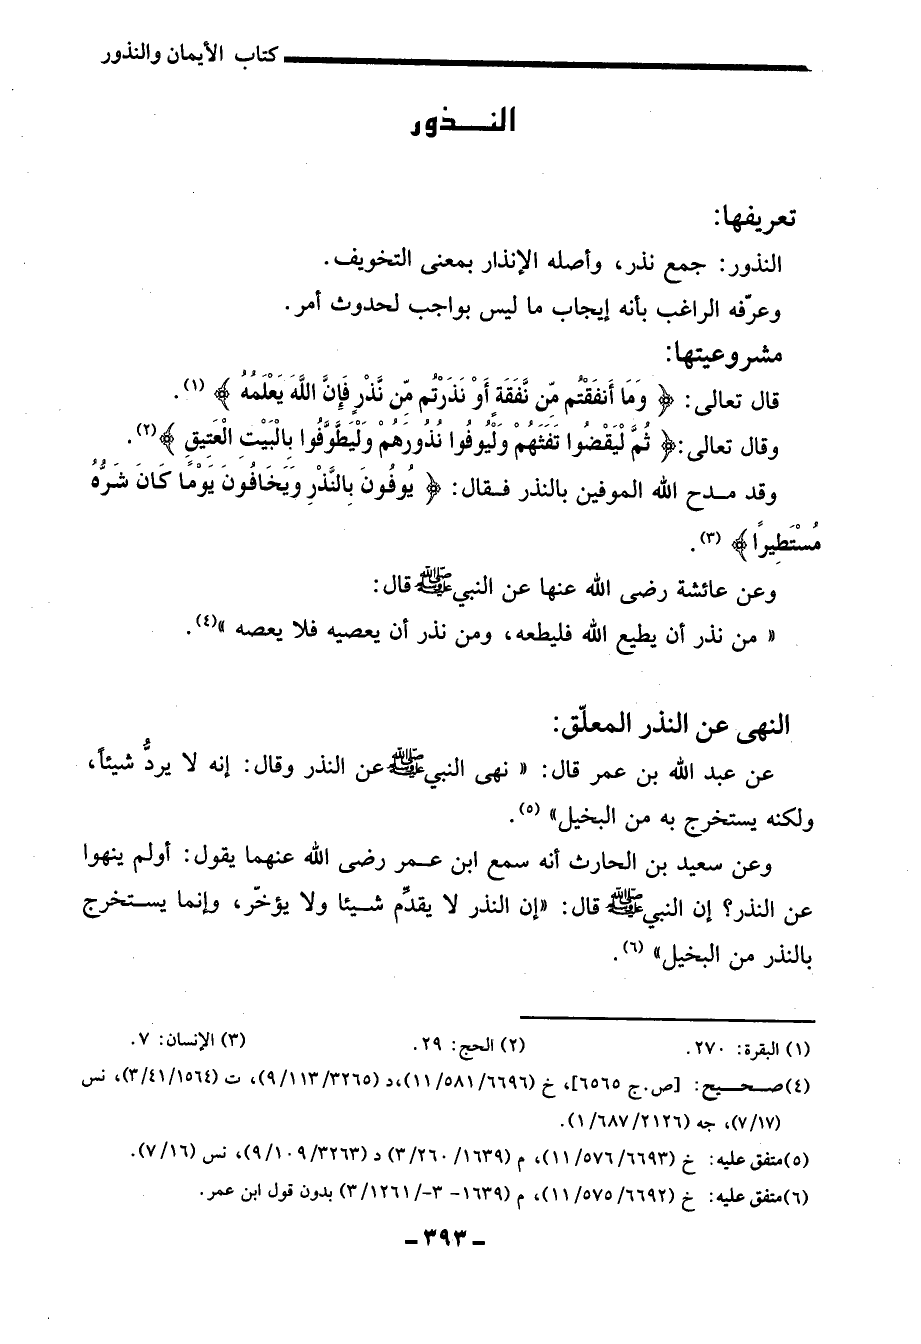 كتاب الأيمان والنذور
النـــذور
تعريفها:
النذور: جمع نذر، وأصله الإنذار بمعنى التخويف.
وعرّفه الراغب بأنه إيجاب ما ليس بواجب لحدوث أمر.
مشروعيتها:
قال تعالى: ﴿ وَمَا أَنفَقْتُم مِّن نَّفَقَةٍ أَوْ نَذَرْتُم مِّن نَّذْرٍ فَإِنَّ اللَّهَ يَعْلَمُهُ ﴾ (١).
وقال تعالى:﴿ ثُمَّ لْيَقْضُوا تَفَثَهُمْ وَلْيُوفُوا نُذُورَهُمْ وَلْيَطَّوَّفُوا بِالْبَيْتِ الْعَتِيقِ ﴾(٢).
وقد مـدح الله الموفين بالنذر فـقال: ﴿ يُوفُونَ بِالنَّذْرِ وَيَخَافُونَ يَوْمًا كَانَ شَرُّهُ
مُسْتَطِيرًا ﴾ (٣).
وعن عائشة رضى الله عنها عن النبي ﷺ قال:
« من نذر أن يطيع الله فليطعه، ومن نذر أن يعصيه فلا يعصه »(٤).
النهى عن النذر المعلّق:
عن عبد الله بن عمر قال: « نهى النبي ﷺ عن النذر وقال: إنه لا يردُّ شيئاً،
ولكنه يستخرج به من البخيل» (٥).
وعن سعيد بن الحارث أنه سمع ابن عـمر رضى الله عنهما يقول: أولم ينهوا
عن النذر؟ إن النبي ﷺ قال: «إن النذر لا يقدِّم شـيئا ولا يؤخّر، وإنما يسـتخرج
بالنذر من البخيل» (٦).
(١) البقرة: ٢٧٠. (٢) الحج: ٢٩. (٣) الإنسان: ٧.
(٤)صـحـيح: [ص.ج ٦٥٦٥]، خ (١١/٥٨١/٦٦٩٦)،د (٩/١١٣/٣٢٦٥)، ت (٣/٤١/١٥٦٤)، نس
(٧/١٧)، جه (١/٦٨٧/٢١٢٦).
(٥)متفق عليه: خ (١١/٥٧٦/٦٦٩٣)، م (٣/٢٦٠/١٦٣٩) د (٩/١٠٩/٣٢٦٣)، نس (٧/١٦).
(٦)متفق عليه: خ (١١/٥٧٥/٦٦٩٢)، م (١٦٣٩- ٣-/٣/١٢٦١) بدون قول ابن عمر.
- ٣٩٣ -